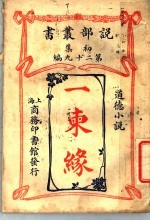 說部叢書
初集
第二十九編
道德小說
一束緣
上海
商務印書館發行